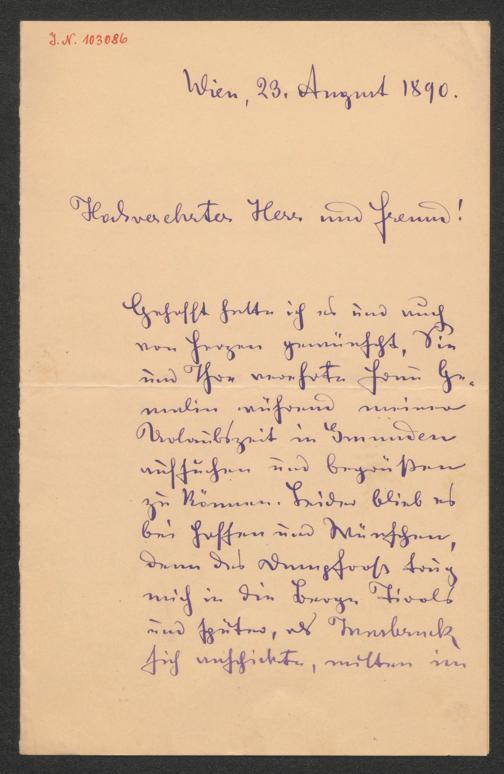 J. N. 103086
Wien, 23. August 1890.
Hochverehrter Herr und Freund!
Gehofft hatte ich es und auch
von Herzen gewünscht, Sie
und Ihre verehrte Frau Ge-
malin während meiner
Urlaubszeit in Gmunden
aufsuchen und begrüßen
zu können. Leider blieb es
bei Hoffen und Wünschen,
denn das Dampfroß trug
mich in die Berge Tirols
und später, als Innsbruck
sich anschickte, mitten im